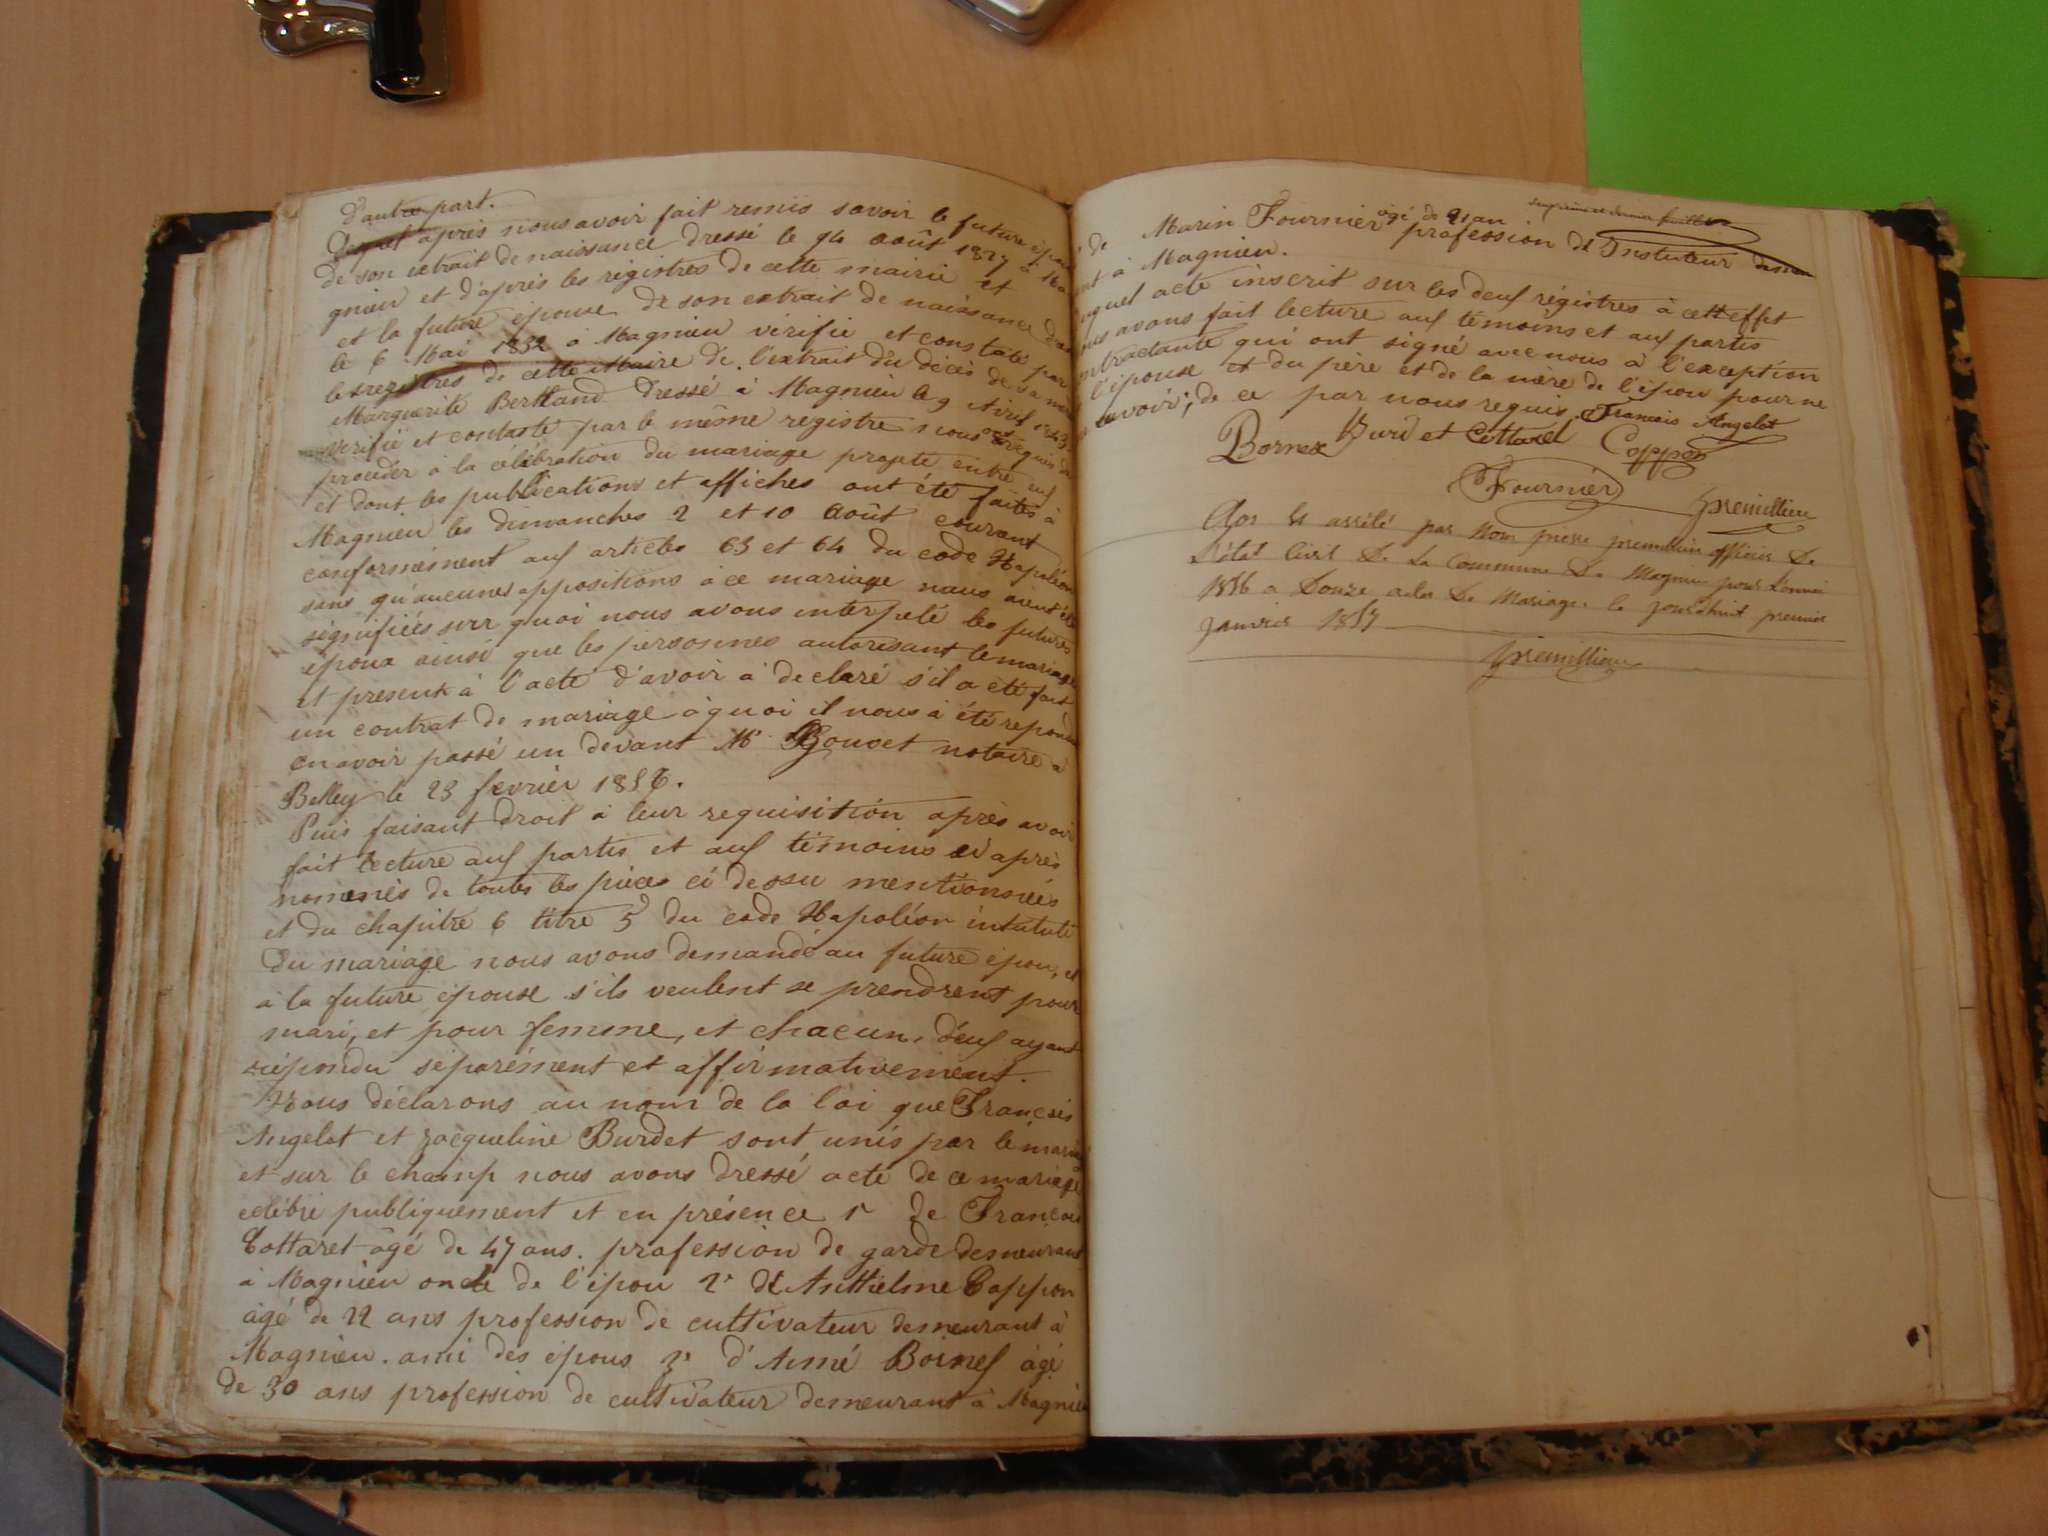 d'autre part.
Lequel après nous avoir fait remis savoir le future épou
de son extrait de naissance dressé le 14 août 1827 à Ma
gnieu et d'après les régistres de cette mairie et
et la future épouse de son extrait de naissance
le 6 Mai 1832 à Magnieu vérifie et constate par
les registres de cette Maire de l'extrait du décès de sa mère
Marguerite Bertland dressé à Magnieu le 9 Avril 1843
verifié et contaste par le même registre nous ont requis de
proceder à la célébration du mariage projeté entre euf
et dont les publications et affiches ont été faites à
Magnieu les dimanches 2 et 10 Août courant
conformément auf articles 63 et 64 du code Napoléon
sans qu'aucunes oppositions à ce mariage nous aient été
signifiées surr quoi nous avons interpelé les futures
époux ainsi que les personnes autorisant le mariage
et present à l'acte d'avoir à declaré s'il a été fait
un contrat de mariage à quoi il nous à été repondu
en avoir passé un devant Me Gouvet notaire à
Belley le 23 fevrier 1856.
Puis faisant droit à leur requisition après avoir
fait lecture auf partis et auf témoins ci après
nommés de toutes les pièces ci dessu mentionnées
et du chapitre 6 titre 5 du code Napoléon intutulé
Du mariage nous avons demandé au future épou, et
à la future épouse s'ils veulent se prendrent pour
mari, et pour femme, et chacun, d'euf ayant
répondu séparément et affirmativement.
Nous déclarons au nom de la loi que François
Angelot et Jacqueline Burdet sont unis par le maria
et sur le champ nous avons dressé acte de ce mariage
célébré publiquement et en présence 1° de François
Cottaret âgé de 47 ans. profession de garde demeurant
à Magnieu oncle de l'épou 2° de Anthelme Coppon
âgé de 22 ans profession de cultivateur demeurant à
Magnieu. ami des épous 3° d'Aimé Boinef âgé
de 30 ans profession de cultivateur demeurant à Magnieu
et dernier feuillet
de Marin Fournier âgé de 21 an profession de Instuteur
à Magnieu.
acte inscrit sur les deuf régistres à cett effet
avons fait lecture auf témoins et auf partis
qui ont signé avec nous à l'exception
l'épouse et du père et de la mère de l'épou pour ne
savoir, de ce par nous requis. François Angelot
Bornex Buri et Cottarel Coppon
Fournier Premillieu
Clos et arrêté par Nous pierre premillieu officier De
L'état Civil De La Commune De Magnieu pour L'année
1856 a Douze actes De Mariage. le jourdhuit premier
Janvier 1857
Premillieu